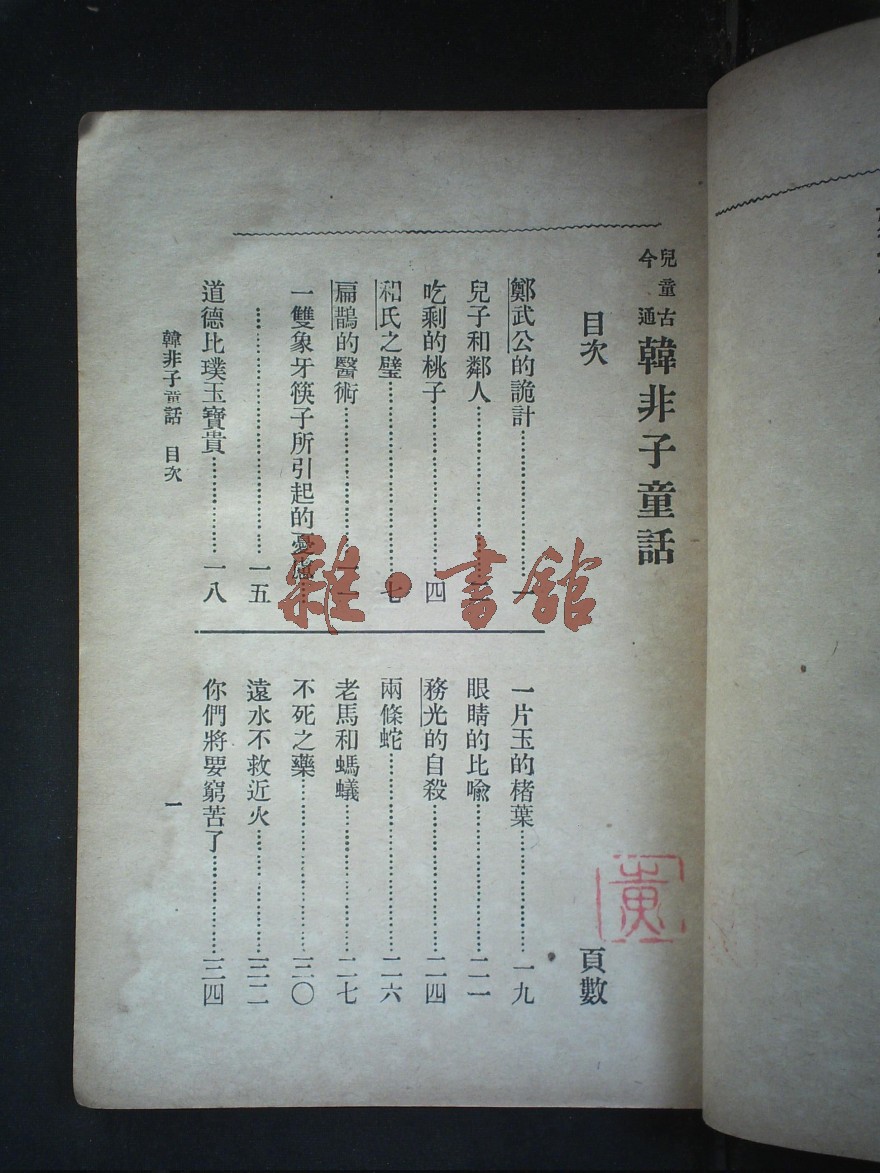 兒童古今通
韓非子童話
目次
頁數
鄭武公的詭計……一
兒子和鄰人……
吃剩的桃子……四
和氏之璧……七
扁鵲的醫術……
一雙象牙筷子所引起的憂慮……
……一五
道德比璞玉寶貴……一八
一片玉的楮葉……一九
眼睛的比喩……二一
務光的自殺……二四
兩條蛇……二六
老馬和螞蟻……二七
不死之藥……三〇
遠水不救近火……三二
你們將要窮苦了……三四
韓非子童話 目次
一
雜·書館
黄